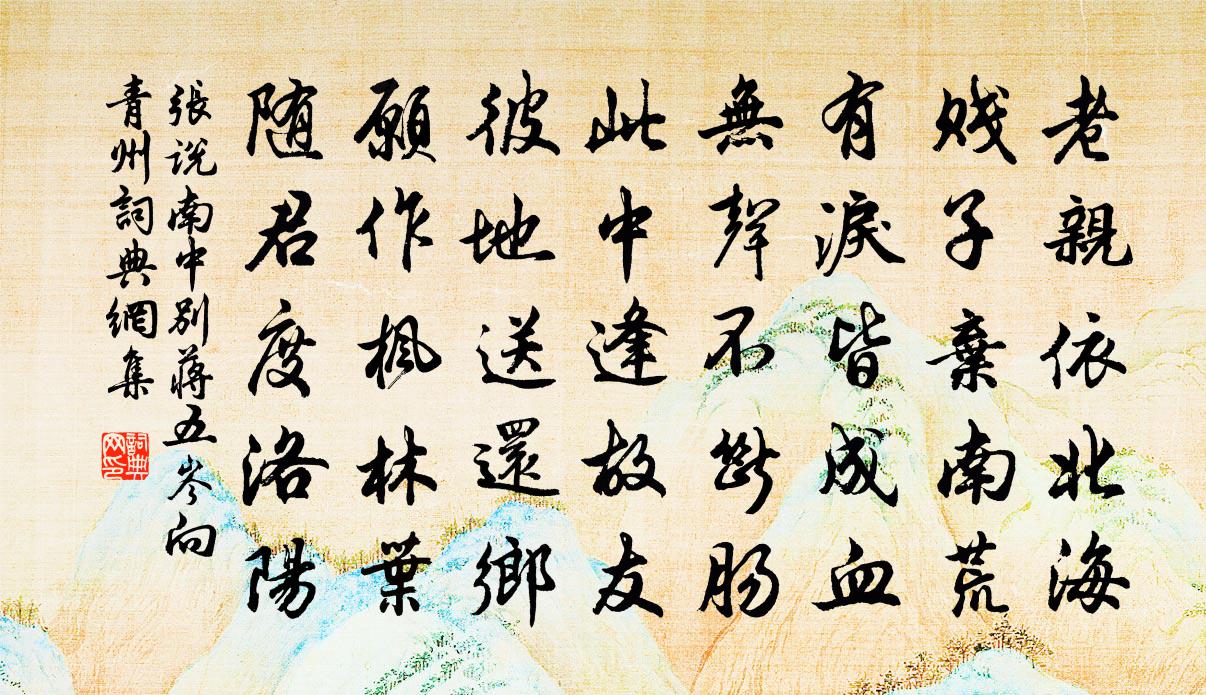 老親依北海
賤子棄南荒
有淚皆成血
無聲不斷腸
此中逢故友
彼地送還鄉
願作楓林葉
随君度洛陽
張説南中别蔣五岑向
青州詞典網集
詞典网印